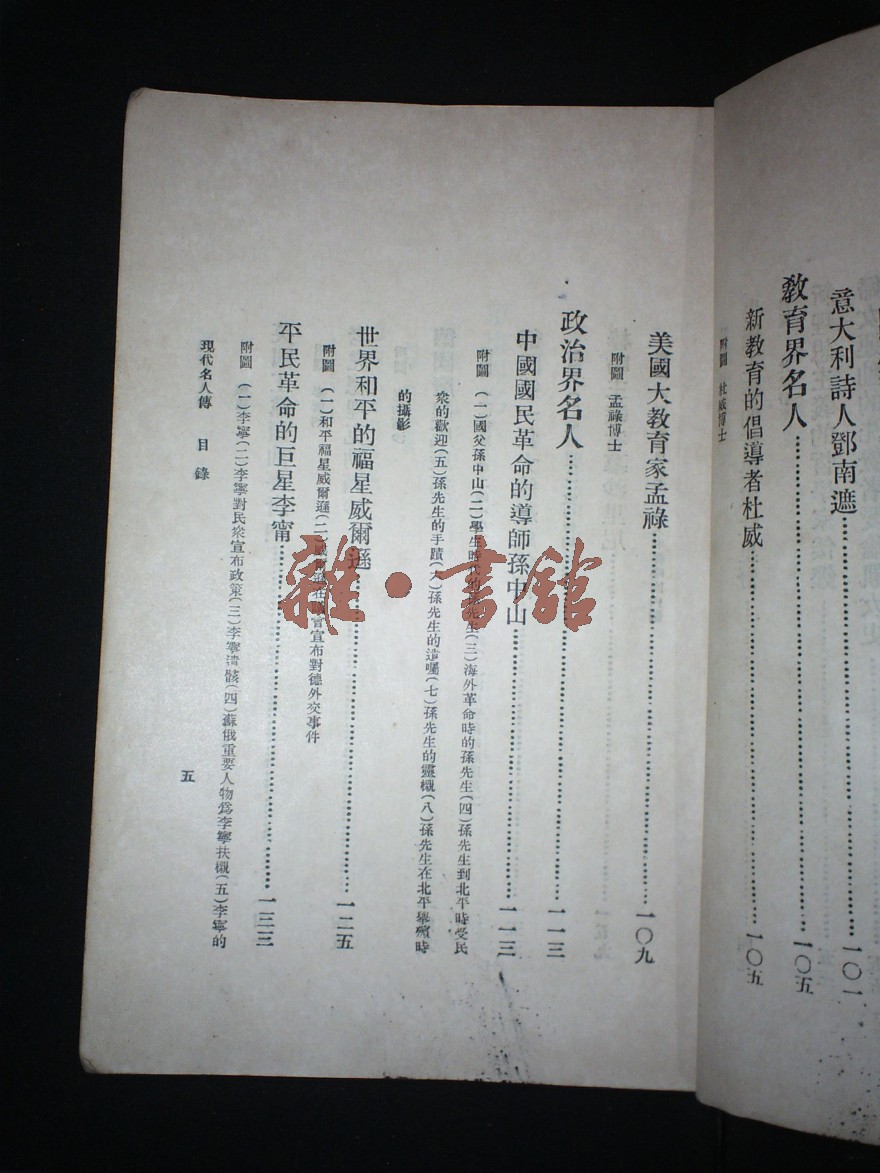 意大利詩人鄧南遮……一〇一
教育界名人……一〇五
新教育的倡導者杜威……一〇五
附圖 杜威博士
美國大教育家孟祿……一〇九
附圖 孟祿博士
政治界名人……一一三
中國國民革命的導師孫中山……一一三
附圖 (一)國父孫中山(二)學生時代的孫先生(三)海外革命時的孫先生(四)孫先生到北平時受民
衆的歡迎(五)孫先生的手蹟(六)孫先生的遺囑(七)孫先生的靈櫬(八)孫先生在北平舉殯時
的攝影
世界和平的福星威爾遜……一二五
附圖 (一)和平福星威爾遜(二)威爾遜在國會宣布對德外交事件
平民革命的巨星李甯……一三三
附圖 (一)李寧(二)李寧對民衆宣布政策(三)李寧遺骸(四)蘇俄重要人物爲李寧扶櫬(五)李寧的
現代名人傳 目錄
五
雜·書館